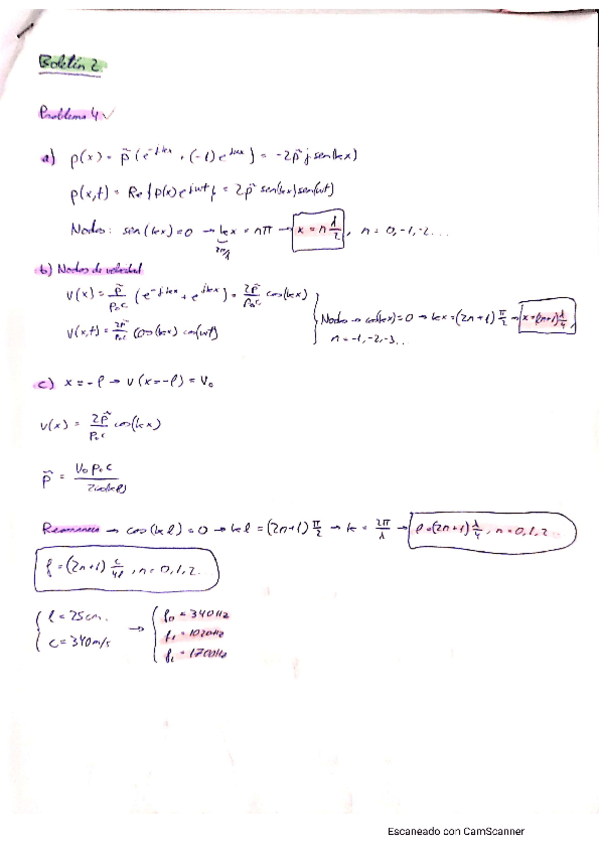 Boletín 2
Problema 4 ✓
a) p(x) = p̃ (e^-jkx + (-1) e^jkx) = -2p̃ j sen(kx)
p(x,t) = Re{p(x) e^jwt} = 2p̃ sen(kx) sen(wt)
Nodos: sen(kx)=0 → kx = nπ → x = n λ/2, n = 0,-1,-2...
2π/λ
b) Nodos de velocidad
v(x) = p̃/ρ₀c (e^-jkx + e^jkx) = 2p̃/ρ₀c cos(kx)
v(x,t) = 2p̃/ρ₀c cos(kx) cos(wt)
Nodos → cos(kx)=0 → kx = (2n+1) π/2 → x = (2n+1) λ/4
n = -1,-2,-3...
c) x = -l → v(x=-l) = V₀
v(x) = 2p̃/ρ₀c cos(kx)
p̃ = V₀ρ₀c / 2cos(kl)
Resonancia → cos(kl) = 0 → kl = (2n+1) π/2 → k = 2π/λ → l = (2n+1) λ/4, n = 0,1,2...
f = (2n+1) c/4l, n = 0,1,2..
l = 25cm. → f₀ = 340Hz
c = 340m/s f₁ = 1020Hz
f₂ = 1700Hz
Escaneado con CamScanner